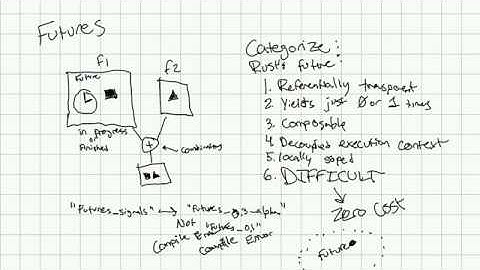 Futures
f1
f2
Future
in progress
or
Finished
+
combinating
Categorize:
Rust's Future
1. Referentially transparent
2. Yields just 0 or 1 times
3. Composable
4. Decoupled execution context
5. locally scoped
6. DIFFICULT
Zero Cost
Future
"Futures_signals" "Futures_0,3-alpha"
Not "Futures_0,1"
Compile Error
Compile Error